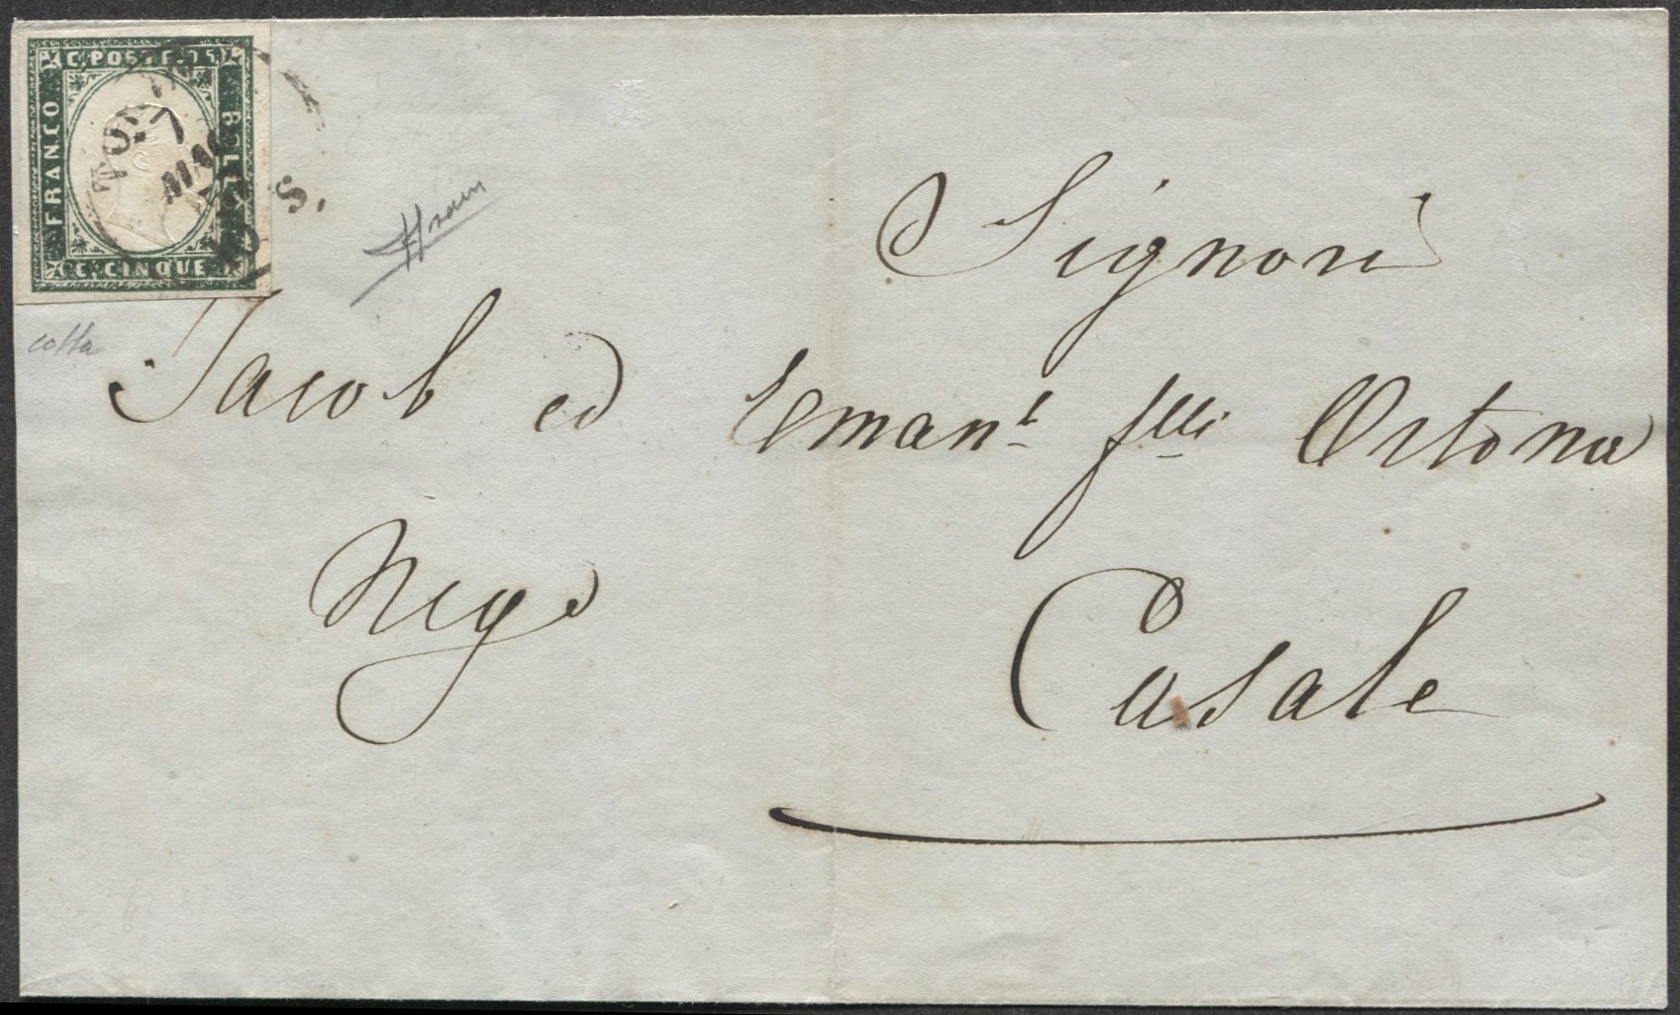 C. POSTE. 05
FRANCO
BOLLO
C. CINQUE
TORINO
7
MAG
S.
cotta
Signori
Jacob ed Emanl flli Ortona
Neg
Casale